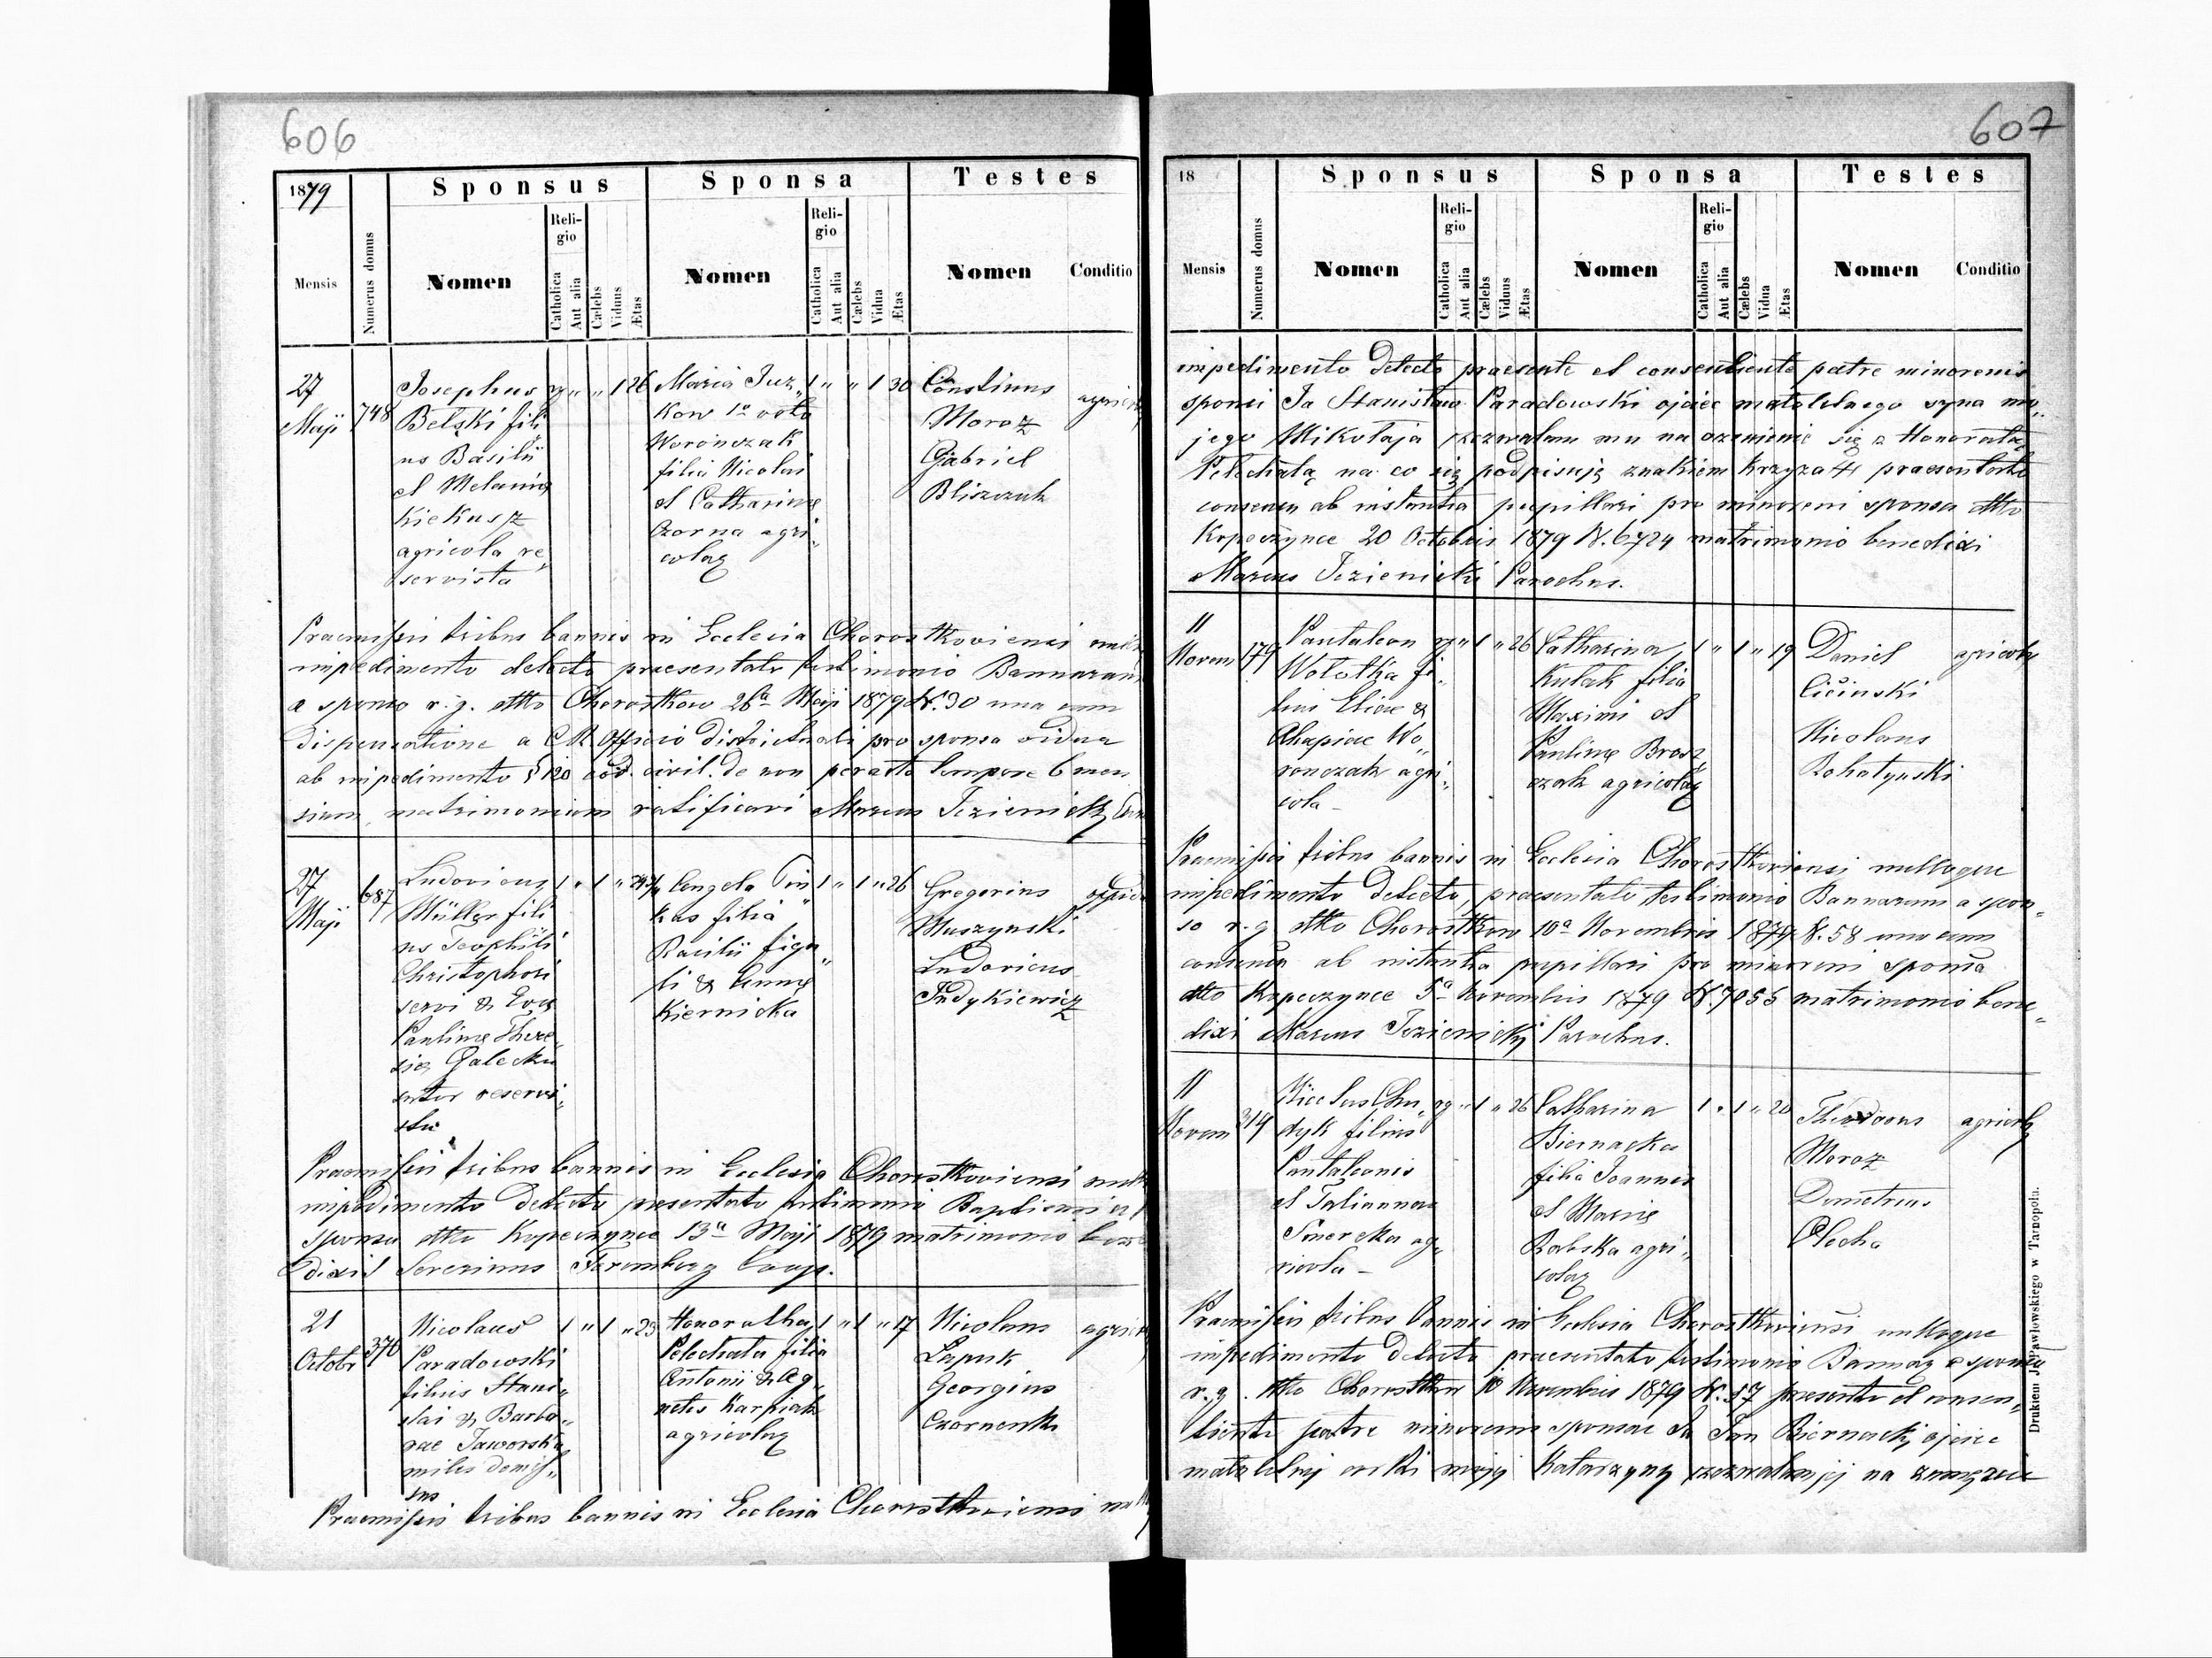 606
1879
Sponsus
Sponsa
Testes
Mensis
Numerus domus
Nomen
Religio
Catholica
Aut alia
Cælebs
Viduus
Ætas
Nomen
Religio
Catholica
Aut alia
Cælebs
Vidua
Ætas
Nomen
Conditio
27 Maji
748
Josephus
Belski fili
us Basilii
et Melania
Kiekusz
agricola re
servista
rg " " 1 26
Maria Juz
kow 1o voto
Woronczak
filia Nicolai
et Catharinæ
Czorna agri
colæ
1 " " 1 30
Moroz
Gabriel
Bliszczuk
Praemissis tribus bannis in Ecclesia Chorostkoviensi
impedimento detecto praesentato testimonio Bannarum
a sponso r. g. dtto Chorostkow 26a Maji 1879 N. 30 una cum
Dispensatione a CR Officio districtuali pro sponsa vidua
ab impedimento § 120 cod. civil. de non peracto tempore 6 men
sium matrimonium ratificavi Marcus Jezienicki
27 Maji
687
Ludovicus
Müller fili
us Teophili
Christophori
servi & Evæ
Paulinæ There
siæ Galecka
sutor reservi
sta
1 " 1 "
Angela Pin
kas filia
Basilii figu
li & Annæ
Kiernicka
1 " 1 " 26
Gregorius
Muszynski
Ludovicus
Judykiewicz
Praemissis tribus bannis in Ecclesia Chorostkoviensi
impedimento detecto presentato testimonio
sponsa dtto Kopeczynce 13a Maji 1879 matrimonio bene
dixit Severinus Coop.
21 Octobr
370
Nicolaus
Paradowski
filius Stani
slai & Barba
rae Jaworska
miles dimis
sus
1 " 1 " 23
Honoratha
Pelechata filia
Antonii & Ag
netis Karpiak
agricolæ
1 " 1 " 17
Nicolaus
Lapuk
Georgius
Czornenki
Praemissis tribus bannis in Ecclesia Chorostkoviensi
607
18
Sponsus
Sponsa
Testes
Mensis
Numerus domus
Nomen
Religio
Catholica
Aut alia
Cælebs
Viduus
Ætas
Nomen
Religio
Catholica
Aut alia
Cælebs
Vidua
Ætas
Nomen
Conditio
impedimento Detecto praesente et consentiente patre minorenis
sponsi Ja Stanisław Paradowski ojciec małoletnego syna mo
jego Mikołaja zezwalam mu na ozenienie się z Honoratą
Pelechatą na co się podpisuję znakiem krzyza + praesentato
consensu ab instantia pupillari pro minoreni sponsa dtto
Kopeczynce 20 Octobris 1879 N. 6724 matrimonio benedixi
Marcus Jezienicki Parochus.
11 Novem
179
Pantaleon
Wolotka fi
lius Eliae &
Ahapiae Wo
ronczak agri
cola
rg " 1 " 26
Catharina
Kulak filia
Maximi et
Paulinæ Brosz
czak agricolæ
1 " 1 " 19
Daniel
Cicinski
Nicolaus
Rohatynski
agricolæ
Praemissis tribus bannis in Ecclesia Chorostkoviensi nulloque
impedimento Detecto, praesentato testimonio Bannarum a spon
so r. g. dtto Chorostkow 10a Novembris 1879 N. 58 una cum
consensu ab instantia pupillari pro minoreni sponsa
dtto Kopeczynce 5a Novembris 1879 N. 7055 matrimonio bene
dixi Marcus Jezienicki Parochus.
11 Novem
319
Nicolaus Chu
dyk filius
Pantaleonis
et Taliannae
Smereka ag
ricola
rg " 1 " 26
Catharina
Biernacka
filia Joannis
et Mariæ
Rabska agri
colæ
1 " 1 " 20
Theodorus
Moroz
Demetrius
agricolæ
Praemissis tribus bannis in Ecclesia Chorostkoviensi nulloque
impedimento Detecto praesentato testimonio Bannar. a sponso
r. g. dtto Chorostkow 10 Novembris 1879 N. 57 presente et consen
tiente patre minorenis sponsae Ja Jan Biernacki ojciec
małoletniej córki mojej Katarzyny zezwalam jej na
Drukiem J. Pawłowskiego w Tarnopolu.